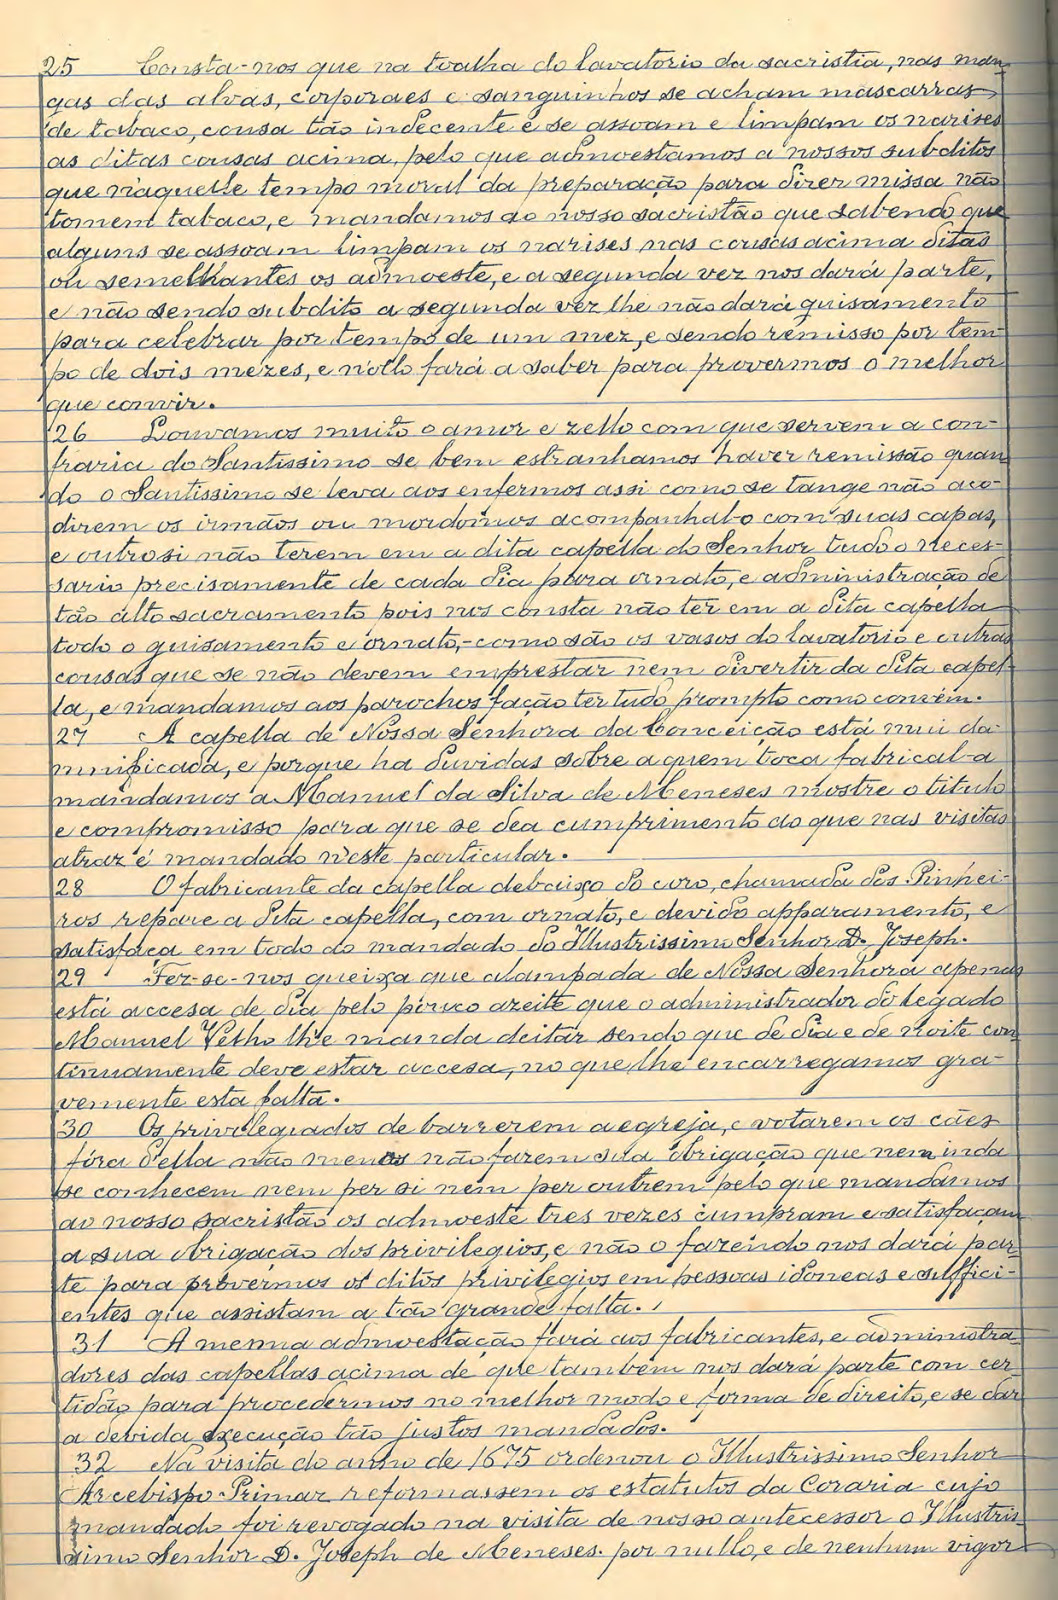 25 Consta-nos que na toalha do lavatorio da sacristia, nas man-
gas das alvas, corporaes e sanguinhos se acham mascarras
de tabaco, cousa tão indecente e se assoam e limpam os narises
as ditas cousas acima, pelo que admoestamos a nossos subditos
que n'aquelle tempo moral da preparação para dizer missa não
tomem tabaco, e mandamos ao nosso sacristão que sabendo que
alguns se assoam limpam os narises nas cousas acima ditas
ou semelhantes os admoeste, e a segunda vez nos dará parte,
e não sendo subdito a segunda vez lhe não dará guisamento
para celebrar por tempo de um mez, e sendo remisso por tem-
po de dois mezes, e n'ol-o fará a saber para provermos o melhor
que convir.
26 Louvamos muito o amor e zello com que servem a con-
fraria do Santissimo se bem estranhamos haver remissão quan
do o Santissimo se leva aos enfermos assi como se tange não aco-
direm os irmãos ou mordomos acompanhal-o com suas capas,
e outrosi não terem em a dita capella do Senhor tudo o neces-
sario precisamente de cada dia para ornato, e administração de
tão alto sacramento pois nos consta não ter em a dita capella
todo o guisamento e ornato,-como são os vasos do lavatorio e outras
cousas que se não devem emprestar nem divertir da dita capel-
la, e mandamos aos parochos fação ter tudo prompto como convém.
27 A capella de Nossa Senhora da Conceição está mui da-
mnificada, e porque ha duvidas sobre a quem toca fabrical-a
mandamos a Manuel da Silva de Meneses mostre o titulo
e compromisso para que se dea cumprimento ao que nas visitas
atraz é mandado n'este particular.
28 O fabricante da capella debaixo do coro, chamada dos Pinhei-
ros repare a dita capella, com ornato, e devido apparamento, e
satisfaça em todo ao mandado do Illustrissimo Senhor D. Joseph.
29 Fez-se-nos queixa que alampada de Nossa Senhora apenas
está accesa de dia pelo pouco azeite que o administrador do legado
Manuel Velho lhe manda deitar sendo que de dia e de noite con
tinuamente deve estar accesa, no que lhe encarregamos gra-
vemente esta falta.
30 Os privilegiados de barrerem a egreja, e votarem os cães
fóra d'ella não menos não fazem sua obrigação que nem inda
se conhecem nem per si nem per outrem pelo que mandamos
ao nosso sacristão os admoeste tres vezes cumpram e satisfaçam
a sua obrigação dos privilegios, e não o fazendo nos dará par-
te para provermos os ditos privilegios em pessoas idoneas e suffici-
entes que assistam a tão grande falta.
31 A mesma admoestação fará aos fabricantes, e administra-
dores das capellas acima de que também nos dará parte com cer
tidão para procedermos no melhor modo e forma de direito, e se dar
a devida execução tão justos mandados.
32 Na visita do anno de 1675 ordenou o Illustrissimo Senhor
Arcebispo Primaz reformassem os estatutos da Coraria cujo
mandado foi revogado na visita de nosso antecessor o Illustris
simo Senhor D. Joseph de Meneses. por nullo, e de nenhum vigor